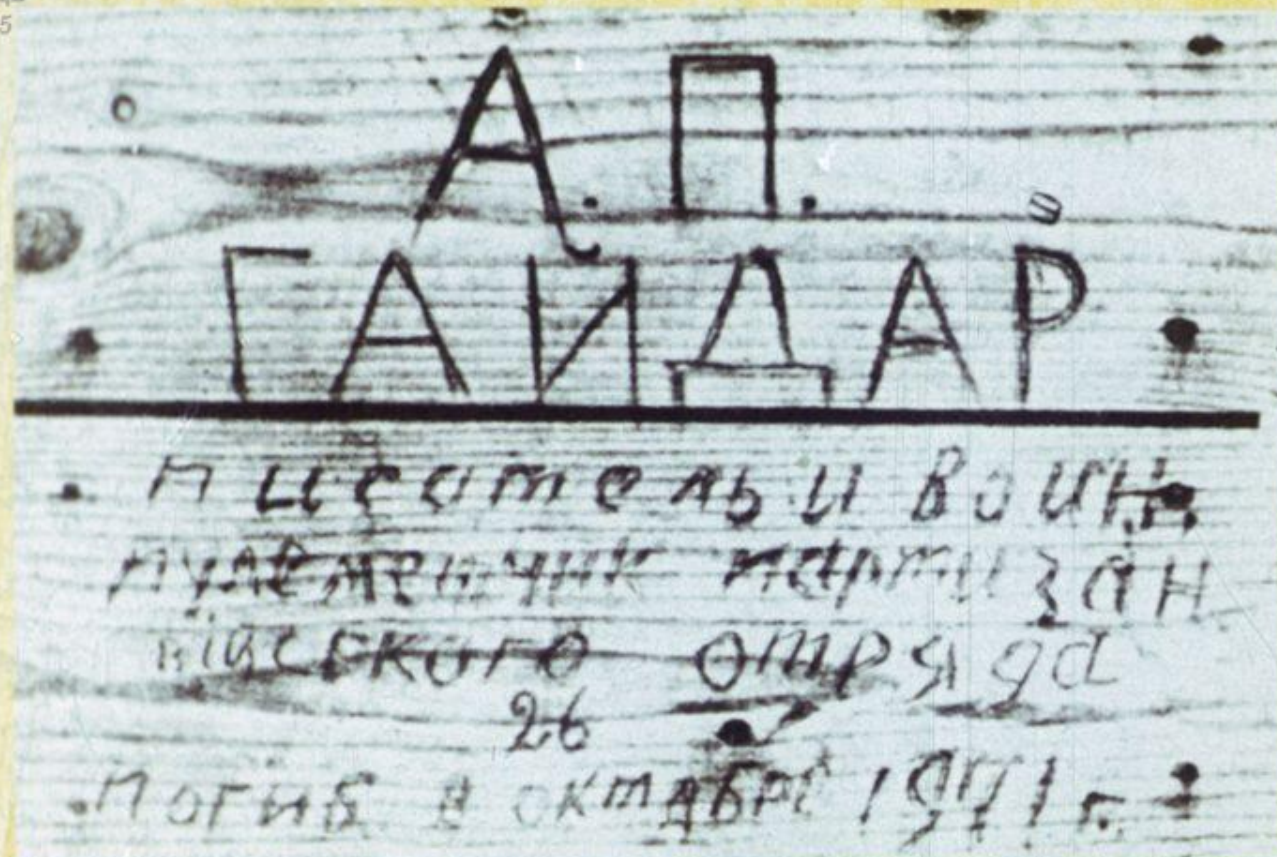 А. П.
ГАЙДАР
писатель и воин,
пулеметчик партизан
отряда
26
погиб в октябре 1941 г.